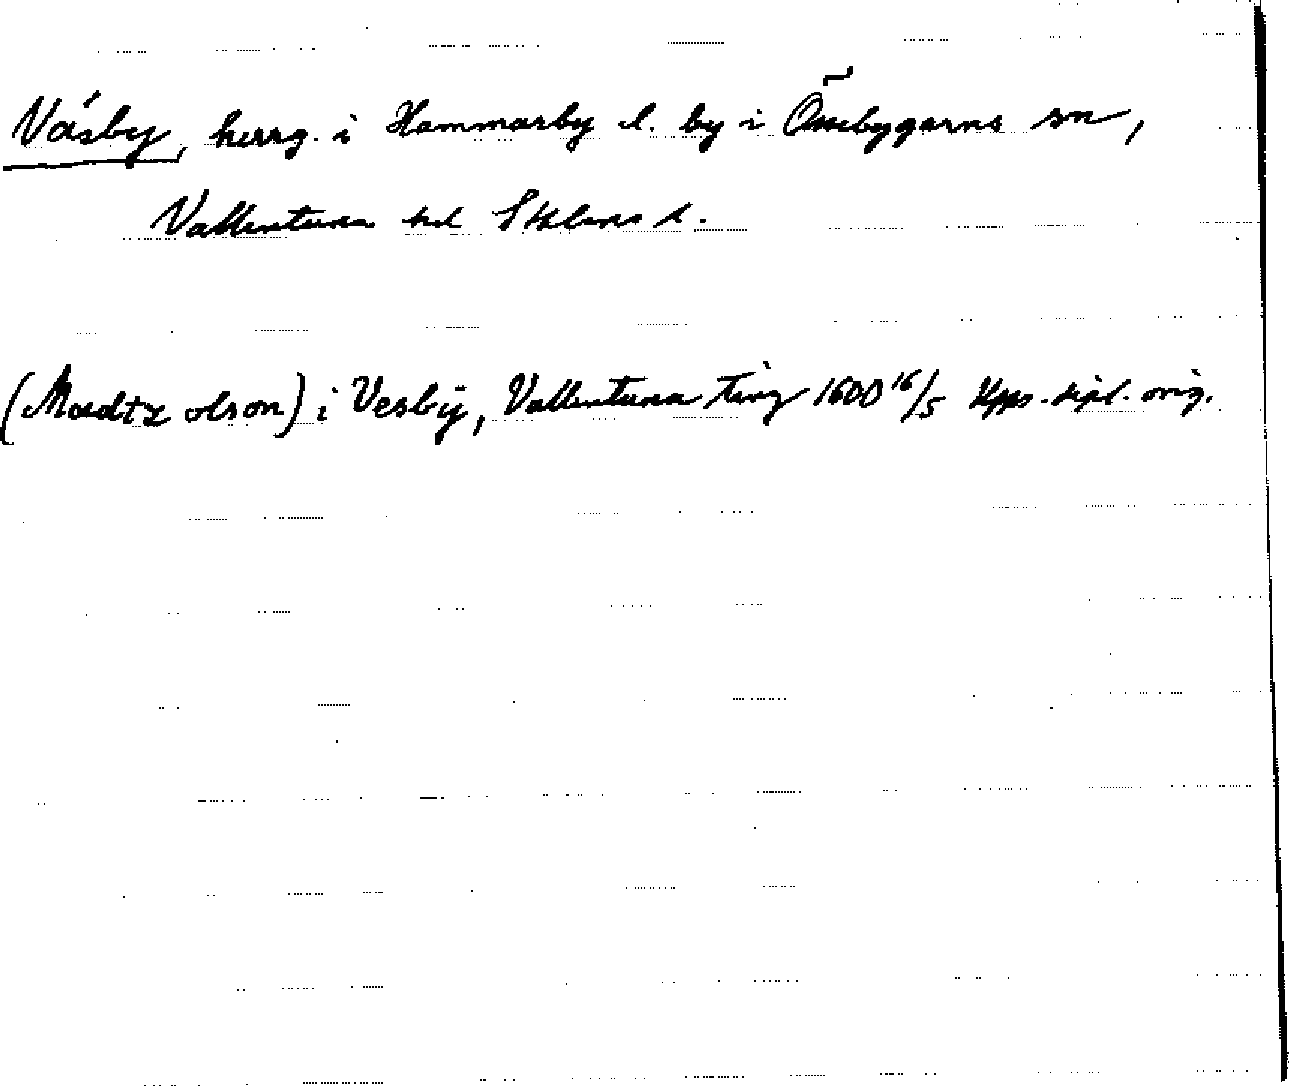 Väsby, herrg. i Hammarby l. by i Össebygarns sn,
Vallentuna hd Sthlms l.
(Madtz olson) i Vesbÿ, Vallentuna ting 1600 16/5 Upps. dipl. orig.